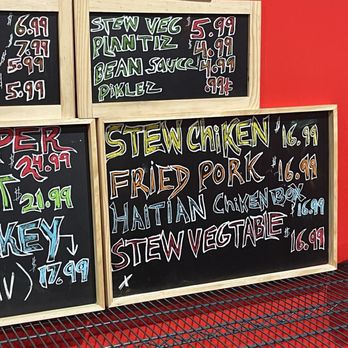 6.99
7.99
5.99
5.99
STEW VEG 5.99
PLANTIZ $4.99
BEAN SAUCE $4.99
PIKLEZ .99¢
PER
$24.99
T
$21.99
KEY
V) $17.99
STEW CHIKEN $16.99
FRIED PORK $16.99
HAITIAN CHIKEN BOX $16.99
STEW VEGTABLE $16.99
X